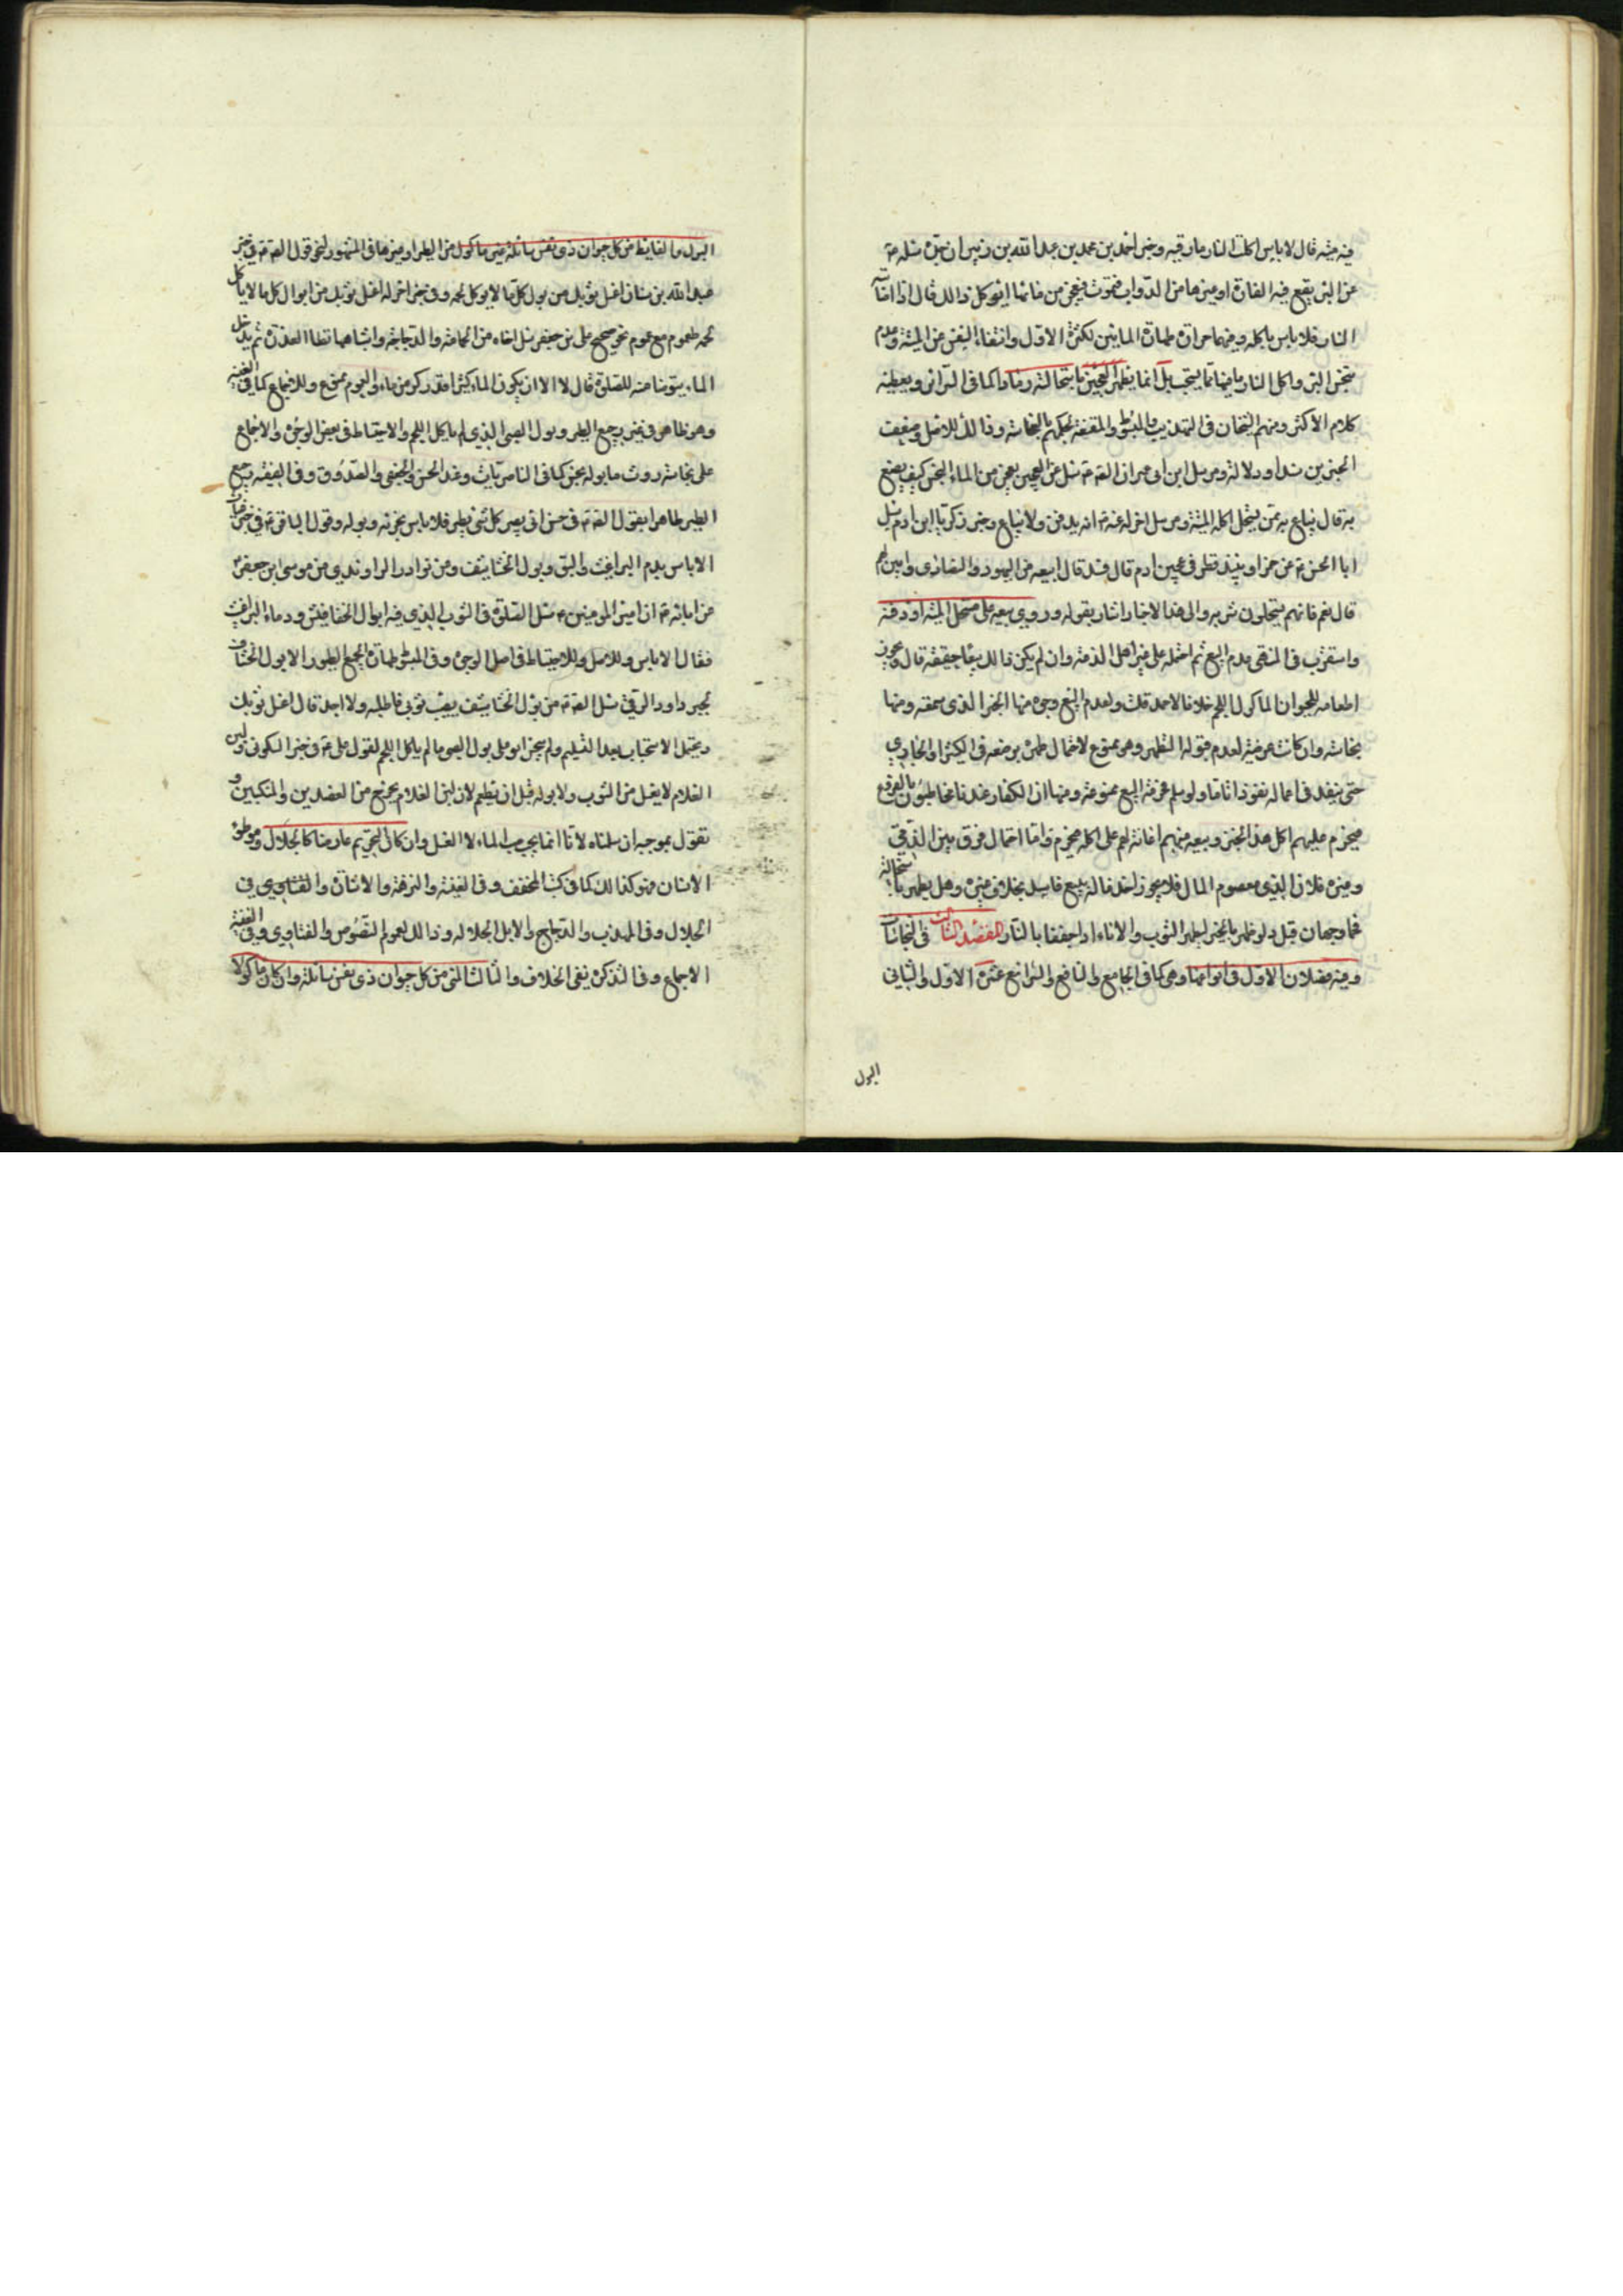 فيه ميتة قال لا باس اكلت النار ما فيه وخبر احمد بن محمد بن عبد الله بن زبير ان جده سئله ع
عن البئر يقع فيه الفارة او غيرها من الدواب فتموت فيعجن من مائها ايؤكل ذالك قال اذا اصابته
النار فلا باس باكله
كلام الاكثر ومنهم الشيخان في التهذيب والمبسوط والمقنعة لحكمهم بالنجاسة وذالك للاصل وضعف
الخبرين سندا ودلالة ومرسل ابن ابي عمير ان الصادق ع سئل عن العجين يعجن من الماء النجس كيف يصنع
به قال يباع ممن يستحل اكل الميتة ومرسل اخر له عنه ع انه يدفن ولا يباع وخبر زكريا ابن ادم سئل
ابا الحسن ع عن خمر او نبيذ قطر في عجين او دم قال فسد قال ابيعه من اليهود والنصارى وابين لهم
قال نعم فانهم يستحلون شربه والى هذا الاخبار اشار بقوله وروي بيعه على مستحل الميتة او دفنه
واستقرب في المنتهى عدم البيع ثم احتمله على غير اهل الذمة وان لم يكن ذالك بيعا حقيقة قال ويجوز
اطعامه للحيوان الماكول اللحم خلافا لاحمد قلت ولعدم البيع وجوه منها الخبر الذي سمعته ومنها
نجاسته وان كانت عرضية لعدم قبوله التطهير وهو ممنوع لاحتمال طهره بوضعه في الكثير او الجاري
حتى ينفذ في اعماله نفوذا تاما ولو سلم فحرمة البيع ممنوعة ومنها ان الكفار عندنا مخاطبون بالفروع
فيحرم عليهم اكل هذا الخبز وبيعه منهم اعانة لهم على اكله فيحرم واما احتمال الفرق بين الذمي
وغيره فلان الذمي معصوم المال فلا يجوز اخذ ماله ببيع فاسد بخلاف غيره وهل يطهر باستحالته
فحما وجهان قيل ولو طهر بالخبز لطهر الثوب والاناء اذا جففا بالنار المقصد الثالث في النجاسات
وفيه فصلان الاول في انواعها وهي كما في الجامع والنافع والشرائع عشرة الاول والثاني
البول
البول والغايط من كل حيوان ذي نفس سائلة غير ماكول من الطير او غيرها في المشهور لنحو قول الصادق ع في خبر
عبد الله بن سنان اغسل ثوبك من بول كل ما لا يؤكل لحمه وفي خبر اخر له اغسل ثوبك من ابوال كل ما لا ياكل
لحمه لعموم مع عموم نحو صحيح علي بن جعفر سئل اخاه من الحمامة والدجاجة واشباهها تطأ العذرة ثم يدخل
الماء يتوضا منه للصلوة قال لا الا ان يكون الماء كثيرا قدر كر من ماء والعموم ممنوع وللاجماع كما في الغنية
وهو ظاهر في غير رجيع الطير وبول الصبي الذي لم ياكل اللحم والاحتياط في بعض الوجوه والاجماع
على نجاسة روث ما بوله نجس كما في الناصريات وعند الحسن والجعفي والصدوق وفي الفقيه رجيع
الطير طاهر لقول الصادق ع في حسن ابي بصير كل شئ يطير فلا باس بخرئه وبوله وقول الباقر ع في خبر غياث
لا باس بدم البراغيث والبق وبول الخشاشيف ومن نوادر الراوندي عن موسى ابن جعفر ع
عن ابائه ع ان امير المومنين ع سئل الصلوة في الثوب الذي فيه ابوال الخفافيش ودماء البراغيث
فقال لا باس وللاصل وللاحتياط في اصل الوجوه وفي المبسوط طهارة رجيع الطيور الا بول الخشاف
لخبر داود الرقي سئل الصادق ع عن بول الخشاشيف يصيب ثوبي فاطلبه ولا اجده قال اغسل ثوبك
ويحتمل الاستحباب بعد التسليم ولم ينجس ابو علي بول الصبي ما لم ياكل اللحم لقول علي ع في خبر السكوني ولبن
الغلام لا يغسل من الثوب ولا بوله قبل ان يطعم لان لبن الغلام يخرج من العضدين والمنكبين و
نقول بموجبه ان سلمناه لانا انما نوجب صب الماء لا الغسل وان كان التحريم عارضا كالجلال وموطوء
الانسان فهو كذالك كما في كتب المحقق وفي الغنية والنزهة والاشارة والفتاوي في
الجلال وفي المهذب والدجاج والابل الجلالة وذالك لعموم النصوص والفتاوي وفي الغنية
الاجماع وفي التذكرة نفي الخلاف والثالث المني من كل حيوان ذي نفس سائلة وان كان ماكولا